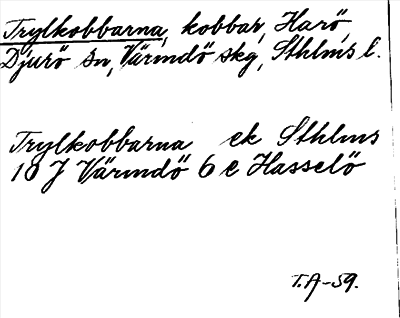 Trylkobbarna, kobbar, Harö,
Djurö sn, Värmdö skg, Sthlms l.
Trylkobbarna ek Sthlms
10 J Värmdö 6 e Hasselö
T.A-59.